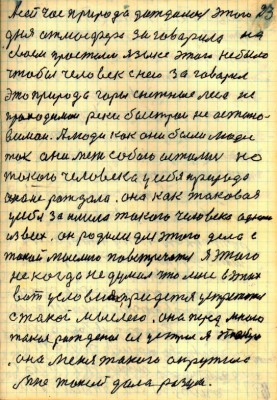 А сейчас природа дождалась этого 23
дня атмосфера заговорила на
своем простом языке этого не было
чтобы человек с нею заговорил
Это природа горы снежные леса не
проходимои реки быстрои не остано-
вимаи. А люди как они были люди
так они меж собою и жили но
такого человека у себя природа
она не рождала, она как таковая
у себя заимела такого человека одного
из всех, он родился для этого дела с
такой мыслию повстречатся Я этого
некогда не думал что мне в этих
вот условиях придется устретится
с такой мыслею, она перед мною
такая рожденая
, она меня такого окружила
мне такой дала разум.